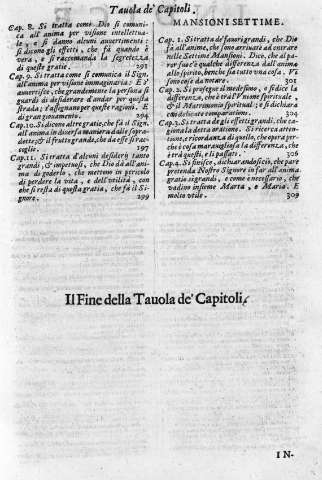 Tauola de' Capitoli,
Cap. 8. Si tratta come Dio si comuni-
ca all'anima per visione intellettua-
le, e si danno alcuni auuertimenti:
si dicono gli effetti, che fà quando è
vera, e si raccomanda la segretezza
di queste gratie. 291
Cap. 9. Si tratta come si comunica il Sign.
all'anima per visione immaginaria: E s'
auuertisce, che grandemente la persona si
guardi di desiderare d'andar per questa
strada; s'assegnano per questo ragioni. E
di gran giouamento. 294
Cap. 10. Si dicono altre gratie, che fà il Sign.
all'anima in diuersa maniera dalle sopra-
dette; & il frutto grande, che da esse si rac-
coglie. 297
Cap. 11. Si tratta d'alcuni desiderij tanto
grandi, & impetuosi, che Dio dà all'ani-
ma di goderlo, che mettono in pericolo
di perdere la vita, e dell'vtilità, con
che si resta di questa gratia, che fà il Si-
gnore. 299
MANSIONI SETTIME.
Cap. 1. Si tratta de' fauori grandi, che Dio
fà all'anime, che sono arriuate ad entrare
nelle Settime Mansioni. Dice, che al pa-
rer suo c'è qualche differenza dall'anima
allo spirito, benche sia tutto vna cosa. Vi
sono cose da notare. 301
Cap. 2. Si prosegue il medesimo, e si dice la
differenza, che è trà l'Vnione spirituale
e'l Matrimonio spirituale; e si dichiara
con delicate comparationi. 304
Cap. 3. Si tratta de gli effetti grandi, che ca-
giona la detta oratione. Si ricerca atten-
tione, e ricordanza di quello, che opera per-
che è cosa marauigliosa la differenza, che
è trà questi, e li passati. 306
Cap. 4. Si finisce, dichiarando ciò, che pare
pretenda Nostro Signore in far all'anima
gratie sì grandi, e come è necessario, che
vadino insieme Marta, e Maria. E
molto vtile. 309
Il Fine della Tauola de' Capitoli.
IN-